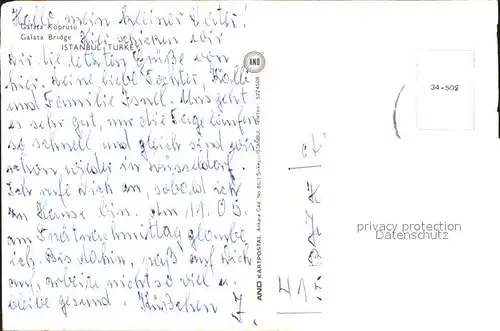 Hallo, mein kleiner Peter!
Galata Köprüsü
Galata Bridge
Hier schicken wir
ISTANBUL - TURKEY
Dir die letzten Grüße von
hier. Deine liebe Tochter,
und Familie Isnel. Uns geht
es sehr gut, nur die Tage laufen
so schnell und gleich sind wir
schon wieder in Düsseldorf.
Ich rufe Dich an, sobald ich
zu Hause bin. Am 11.05.
am Spätnachmittag glaube
ich. Bis dahin, paß auf Dich
auf, arbeite nicht so viel u.
bleibe gesund. Küßchen
AND
AND KARTPOSTAL Ankara Cad. No: 80/7 Sirkeci - ISTANBUL Telefon: 5224508
34-509
privacy protection
Datenschutz